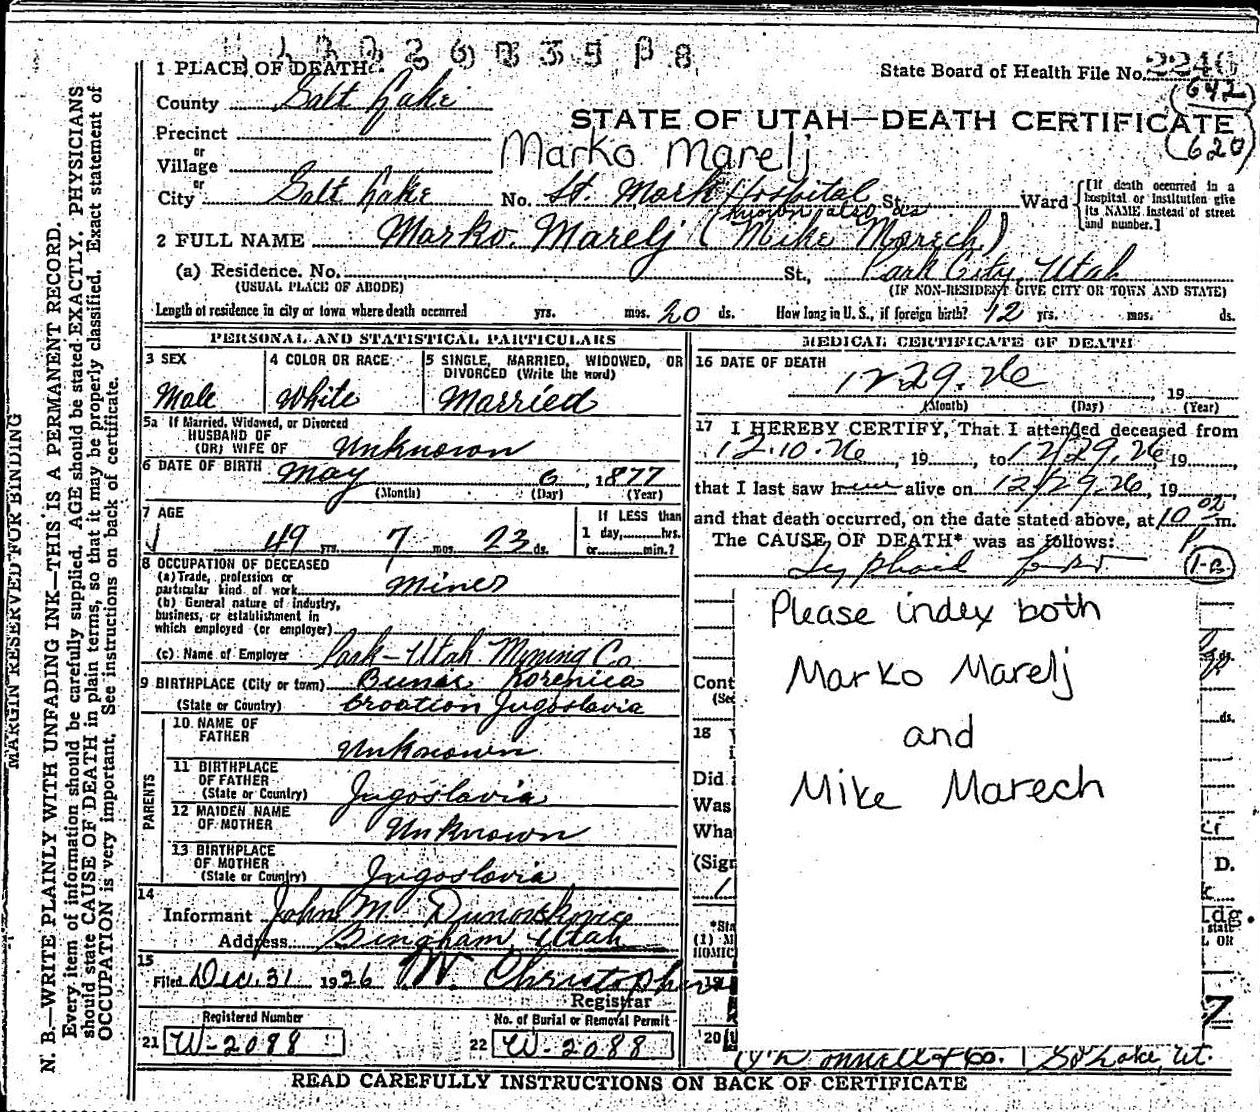 1 PLACE OF DEATH
State Board of Health File No. 2246
County Salt Lake
(642)
STATE OF UTAH—DEATH CERTIFICATE
(620)
Precinct
or
Village
Marko Marelj
or
City Salt Lake No. St. Mark Hospital St. Ward
[If death occurred in a hospital or institution give its NAME instead of street and number.]
known also as
2 FULL NAME Marko Marelj (Mike Marech)
(a) Residence. No. St., Park City, Utah
(USUAL PLACE OF ABODE) (IF NON-RESIDENT GIVE CITY OR TOWN AND STATE)
Length of residence in city or town where death occurred yrs. mos. 20 ds. How long in U. S., if foreign birth? 12 yrs. mos. ds.
PERSONAL AND STATISTICAL PARTICULARS
3 SEX
Male
4 COLOR OR RACE
White
5 SINGLE, MARRIED, WIDOWED, OR DIVORCED (Write the word)
Married
5a If Married, Widowed, or Divorced
HUSBAND OF
(OR) WIFE OF Unknown
6 DATE OF BIRTH May 6, 1877
(Month) (Day) (Year)
7 AGE
49 yrs. 7 mos. 23 ds.
If LESS than
1 day,......hrs.
or......min.?
8 OCCUPATION OF DECEASED
(a) Trade, profession or
particular kind of work Miner
(b) General nature of industry,
business, or establishment in
which employed (or employer)
(c) Name of Employer Park-Utah Mining Co
9 BIRTHPLACE (City or town) Bunic Korenica
(State or Country) Croation Jugoslavia
PARENTS
10 NAME OF
FATHER
Unknown
11 BIRTHPLACE
OF FATHER
(State or Country) Jugoslavia
12 MAIDEN NAME
OF MOTHER Unknown
13 BIRTHPLACE
OF MOTHER
(State or Country) Jugoslavia
14
Informant John M.
Address Bingham, Utah
15
Filed Dec. 31 1926 W. Christopher
Registrar
Registered Number
21 W-2088
No. of Burial or Removal Permit
22 W-2088
MEDICAL CERTIFICATE OF DEATH
16 DATE OF DEATH
12 29. 26, 19
(Month) (Day) (Year)
17 I HEREBY CERTIFY, That I attended deceased from
12.10.26, 19, to 12/29.26, 19,
that I last saw h alive on 12/29.26, 19
and that death occurred, on the date stated above, at 10 02 m.
P
The CAUSE OF DEATH* was as follows:
Typhoid
(1-B)
Please index both
Marko Marelj
and
Mike Marech
ds.
Cont
(See
ds.
18
Did
Was
Wha
(Sign
D.
ldg.
*Sta
state
(1) M
OR
HOMIC
19
20
O'Donnell & Co. S. Lake, Ut.
READ CAREFULLY INSTRUCTIONS ON BACK OF CERTIFICATE
MARGIN RESERVED FOR BINDING
N. B.—WRITE PLAINLY WITH UNFADING INK—THIS IS A PERMANENT RECORD.
Every item of information should be carefully supplied. AGE should be stated EXACTLY. PHYSICIANS
should state CAUSE OF DEATH in plain terms, so that it may be properly classified. Exact statement of
OCCUPATION is very important. See instructions on back of certificate.